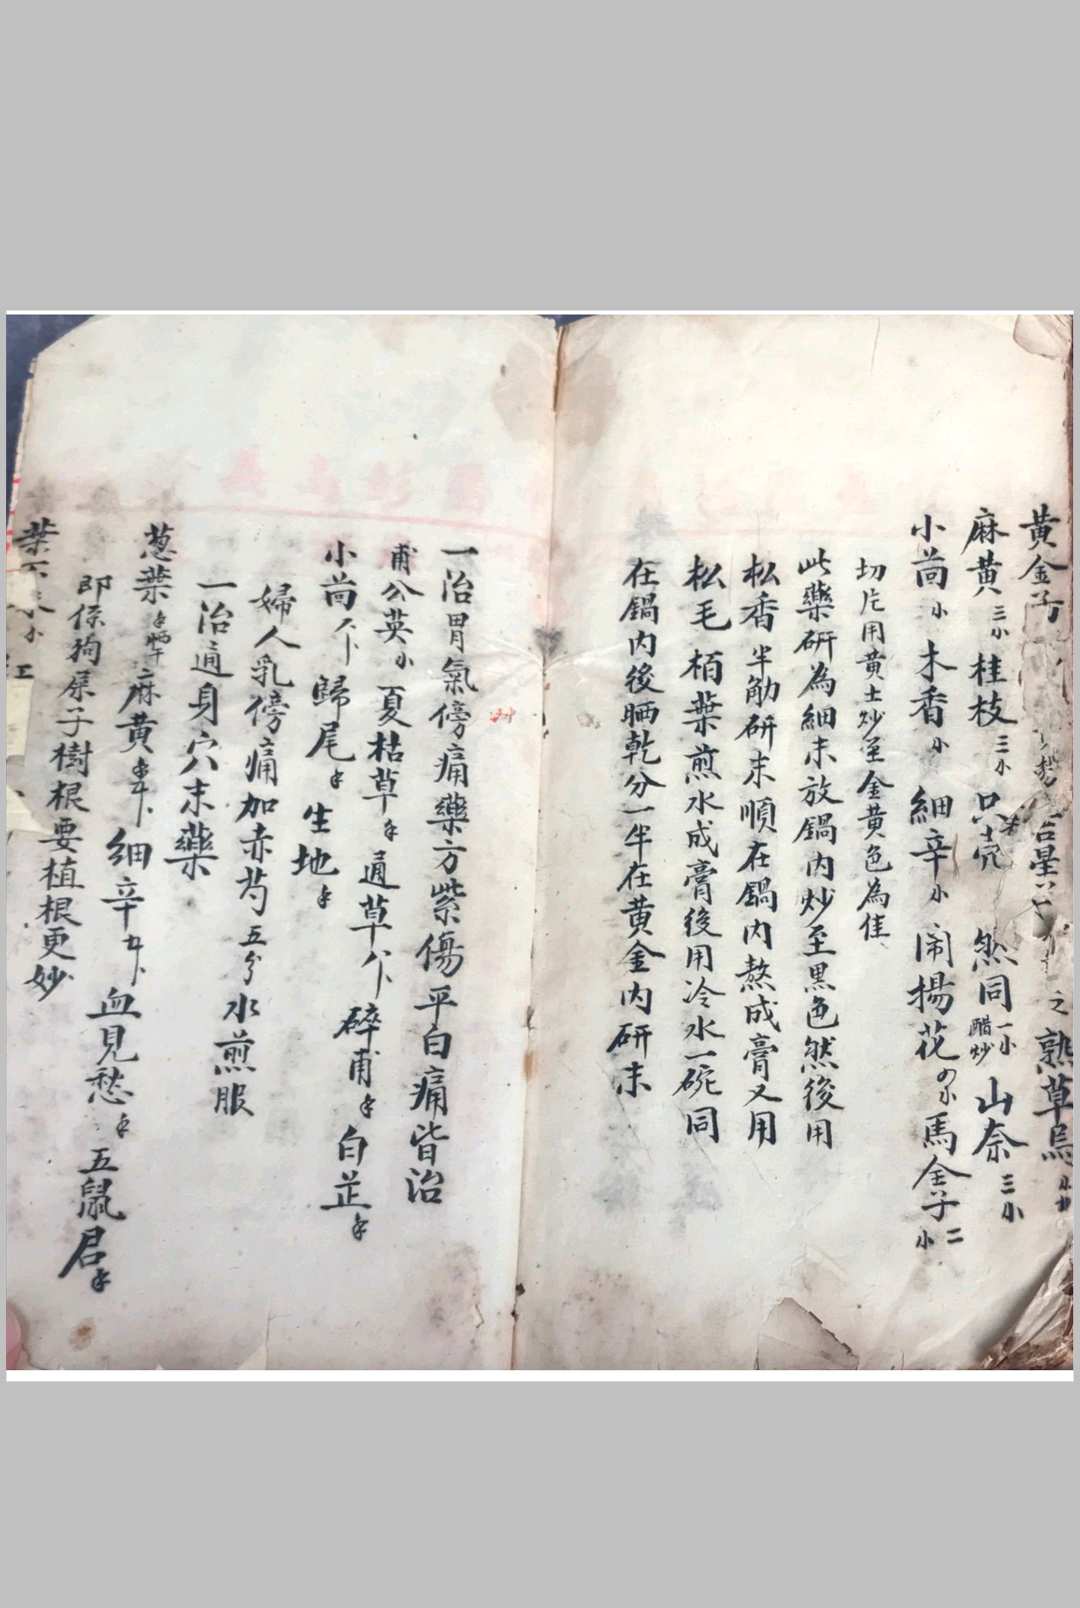 黄金子 熟草烏
麻黄三小 桂枝三小 只壳 然同一小醋炒 山奈三小
小茴小 木香小 細辛小 闹揚花 馬金子二小
切片用黄土炒至金黄色為佳
此藥研為細末放鍋内炒至黑色然後用
松香半觔研末順在鍋内熬成膏又用
松毛栢葉煎水成膏後用冷水一碗同
在鍋内後晒乾分一半在黄金内研末
一治胃氣傍痛藥方紫傷平白痛皆治
甫公英小 夏枯草 通草 碎甫 白芷
小茴 歸尾 生地
婦人乳傍痛加赤芍五分水煎服
一治通身穴末藥
葱葉 麻黄 細辛 血見愁 五鼠君
即係狗屎子樹根要植根更妙
葉